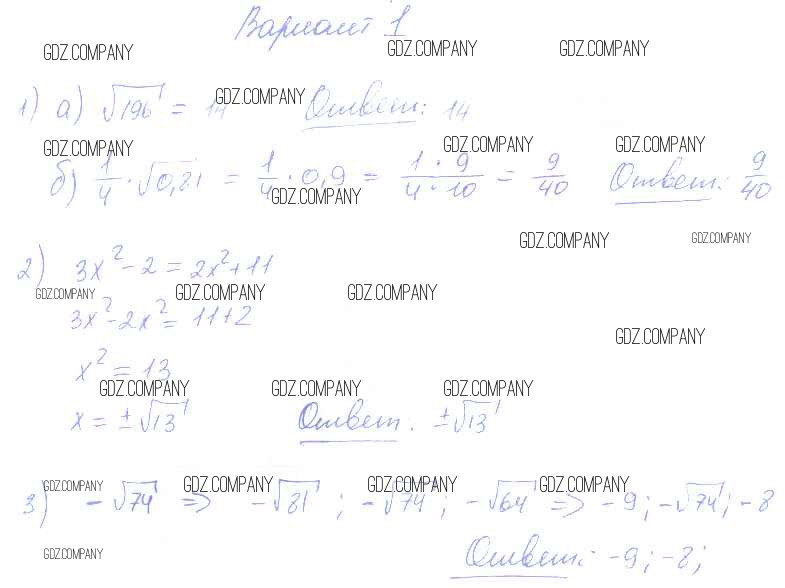 Вариант 1
GDZ.COMPANY GDZ.COMPANY GDZ.COMPANY
1) а) √196 = 14 GDZ.COMPANY Ответ: 14
GDZ.COMPANY GDZ.COMPANY GDZ.COMPANY
б) 1/4 · √0,81 = 1/4 · 0,9 = 1·9/4·10 = 9/40 Ответ: 9/40
GDZ.COMPANY
GDZ.COMPANY GDZ.COMPANY
2) 3x² - 2 = 2x² + 11
GDZ.COMPANY GDZ.COMPANY GDZ.COMPANY
3x² - 2x² = 11 + 2
GDZ.COMPANY
x² = 13
GDZ.COMPANY GDZ.COMPANY GDZ.COMPANY
x = ±√13 Ответ: ±√13
GDZ.COMPANY GDZ.COMPANY GDZ.COMPANY GDZ.COMPANY
3) -√74 => -√81; -√74; -√64 => -9; -√74; -8
GDZ.COMPANY Ответ: -9; -8;